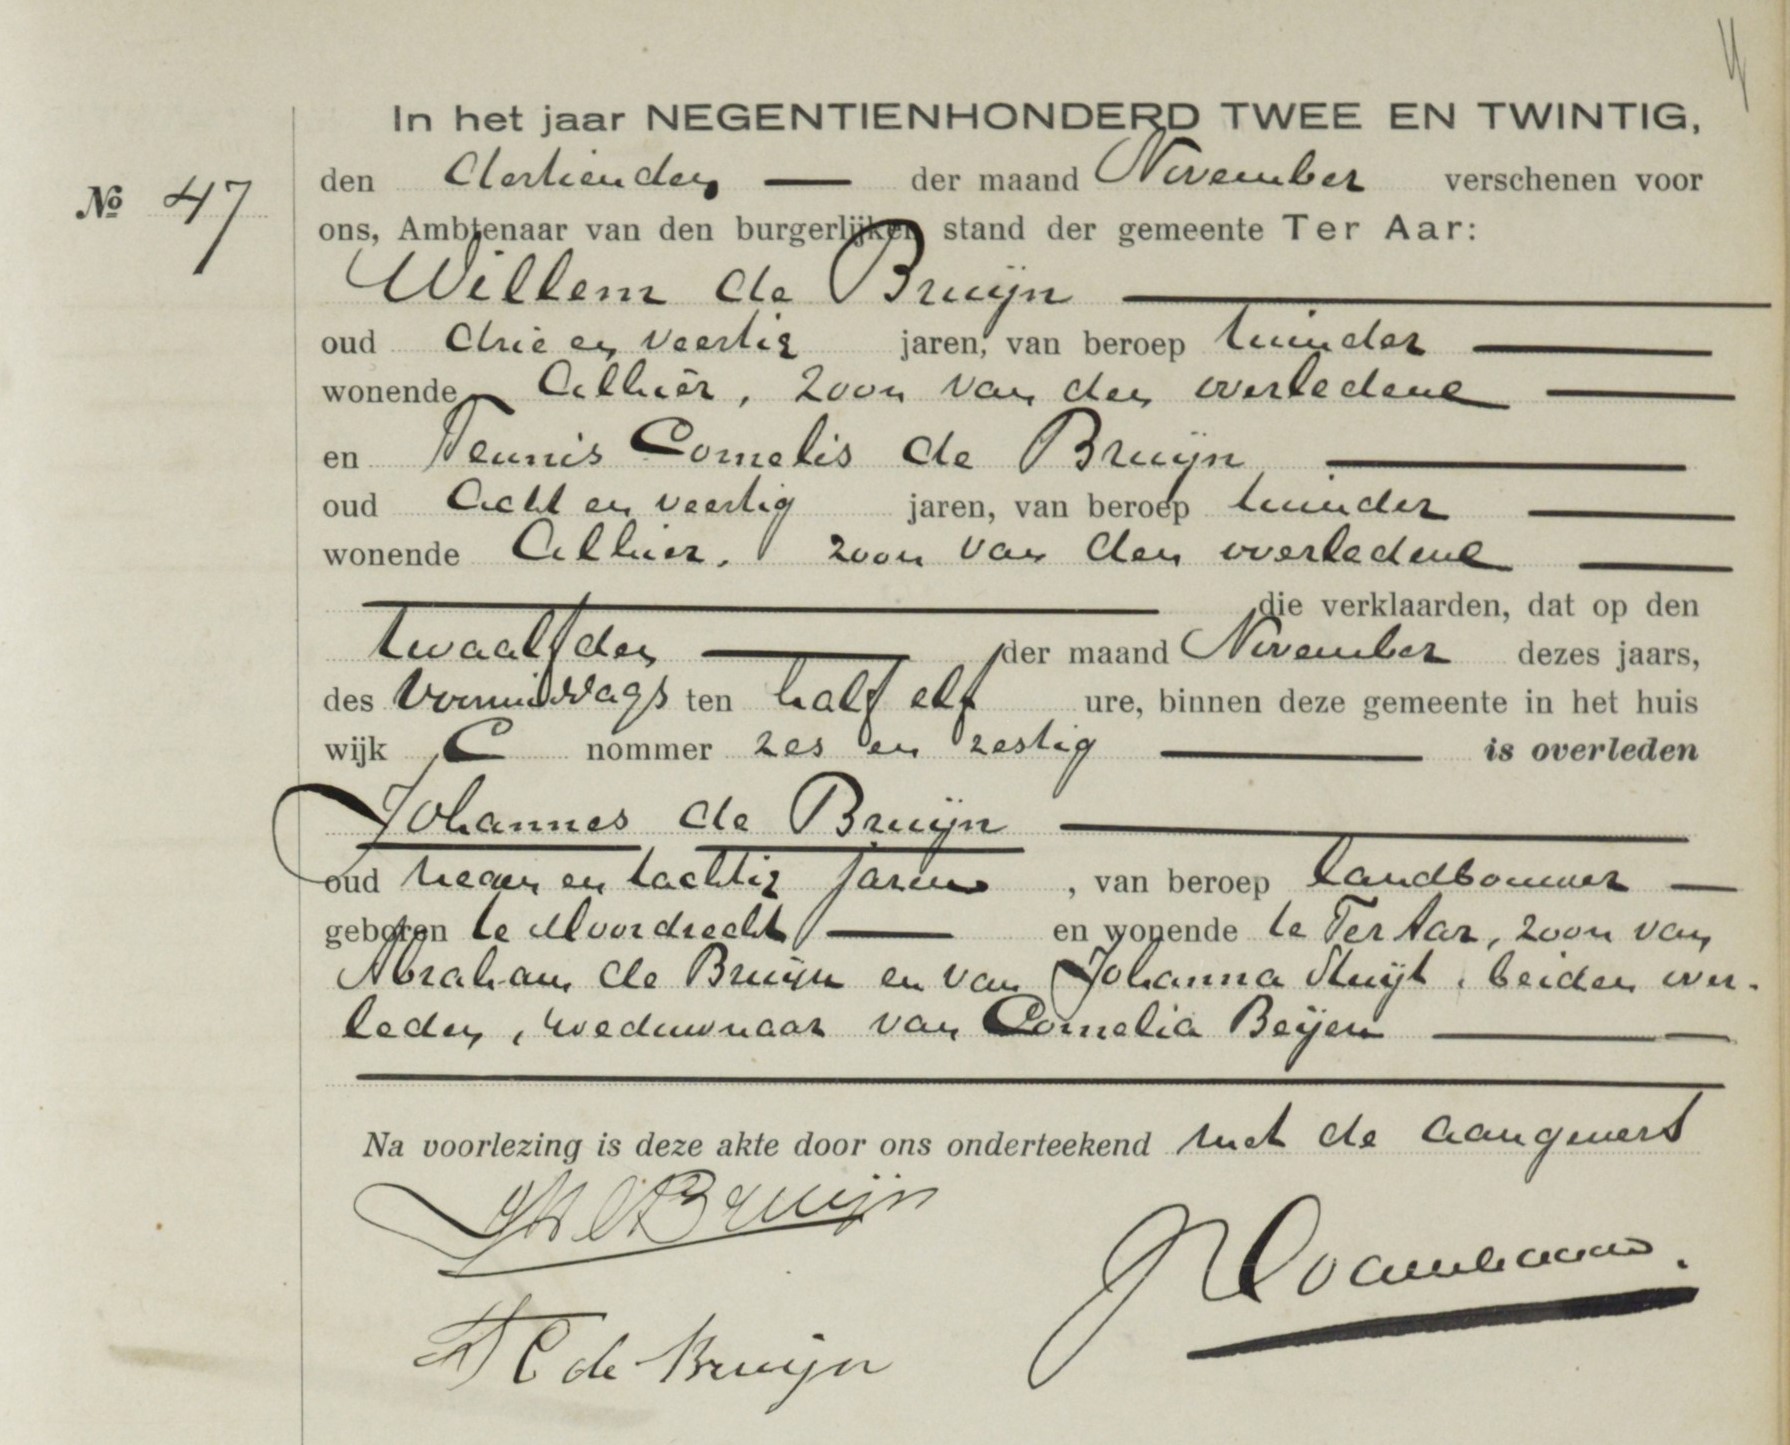 In het jaar NEGENTIENHONDERD TWEE EN TWINTIG,
den dertienden der maand November verschenen voor
No 47
ons, Ambtenaar van den burgerlijken stand der gemeente Ter Aar:
Willem de Bruijn
oud drie en veertig jaren, van beroep tuinder
wonende Alhier, zoon van den overledene
en Teunis Cornelis de Bruijn
oud Acht en veertig jaren, van beroep tuinder
wonende Alhier, zoon van den overledene
die verklaarden, dat op den
twaalfden der maand November dezes jaars,
des voormiddags ten half elf ure, binnen deze gemeente in het huis
wijk C nommer zes en zestig is overleden
Johannes de Bruijn
oud negen en tachtig jaren, van beroep landbouwer
geboren te Moordrecht en wonende te Ter Aar, zoon van
Abraham de Bruijn en van Johanna Sluijt, beiden over-
leden, weduwnaar van Cornelia Beijen
Na voorlezing is deze akte door ons onderteekend met de aangevers
de Bruijn
T C de Bruijn